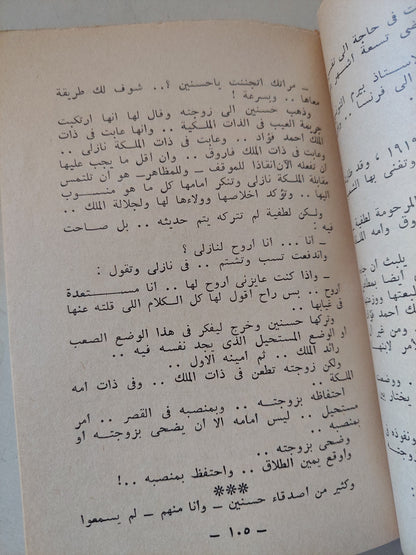 ـ مراتك اتجننت ياحسنين ؟ .. شوف لك طريقة
معاها .. وبسرعة !
وذهب حسنين الى زوجته وقال لها انها ارتكبت
جريمة العيب فى الذات الملكية .. وانها عابت فى ذات
الملك احمد فؤاد .. وعابت فى ذات الملكة نازلى ..
وعابت فى ذات الملك فاروق .. وان اقل ما يجب عليها
ان تفعله الآن انقاذا للموقف ـ وللمظاهر ـ هو ان تلتمس
مقابلة الملكة نازلى وتنكر امامها كل ما هو منسوب
اليها .. وتؤكد اخلاصها وولاءها لها ولجلالة الملك ..
ولكن لطفية لم تتركه يتم حديثه .. بل صاحت
فيه :
ـ أنا ... انا اروح لنازلى ؟
واندفعت تسب وتشتم .. فى نازلى وتقول :
ـ واذا كنت عايزنى اروح لها .. انا مستعدة
اروح .. بس راح اقول لها كل الكلام اللى قلته عنها
فى غيابها ..
وتركها حسنين وخرج ليفكر فى هذا الوضع الصعب
او الوضع المستحيل الذى يجد نفسه فيه ..
رائد الملك .. ثم امينه الاول ..
ولكن زوجته تطعن فى ذات الملك .. وفى ذات امه
الملكة ..
احتفاظه بزوجته .. وبمنصبه فى القصر .. امر
مستحيل .. ليس امامه الا ان يضحى بزوجته او
بمنصبه ..
وضحى بزوجته ..
واوقع يمين الطلاق .. واحتفظ بمنصبه .. !
***
وكثير من اصدقاء حسنين ـ وانا منهم ـ لم يسمعوا
ـ ١٠٥ ـ